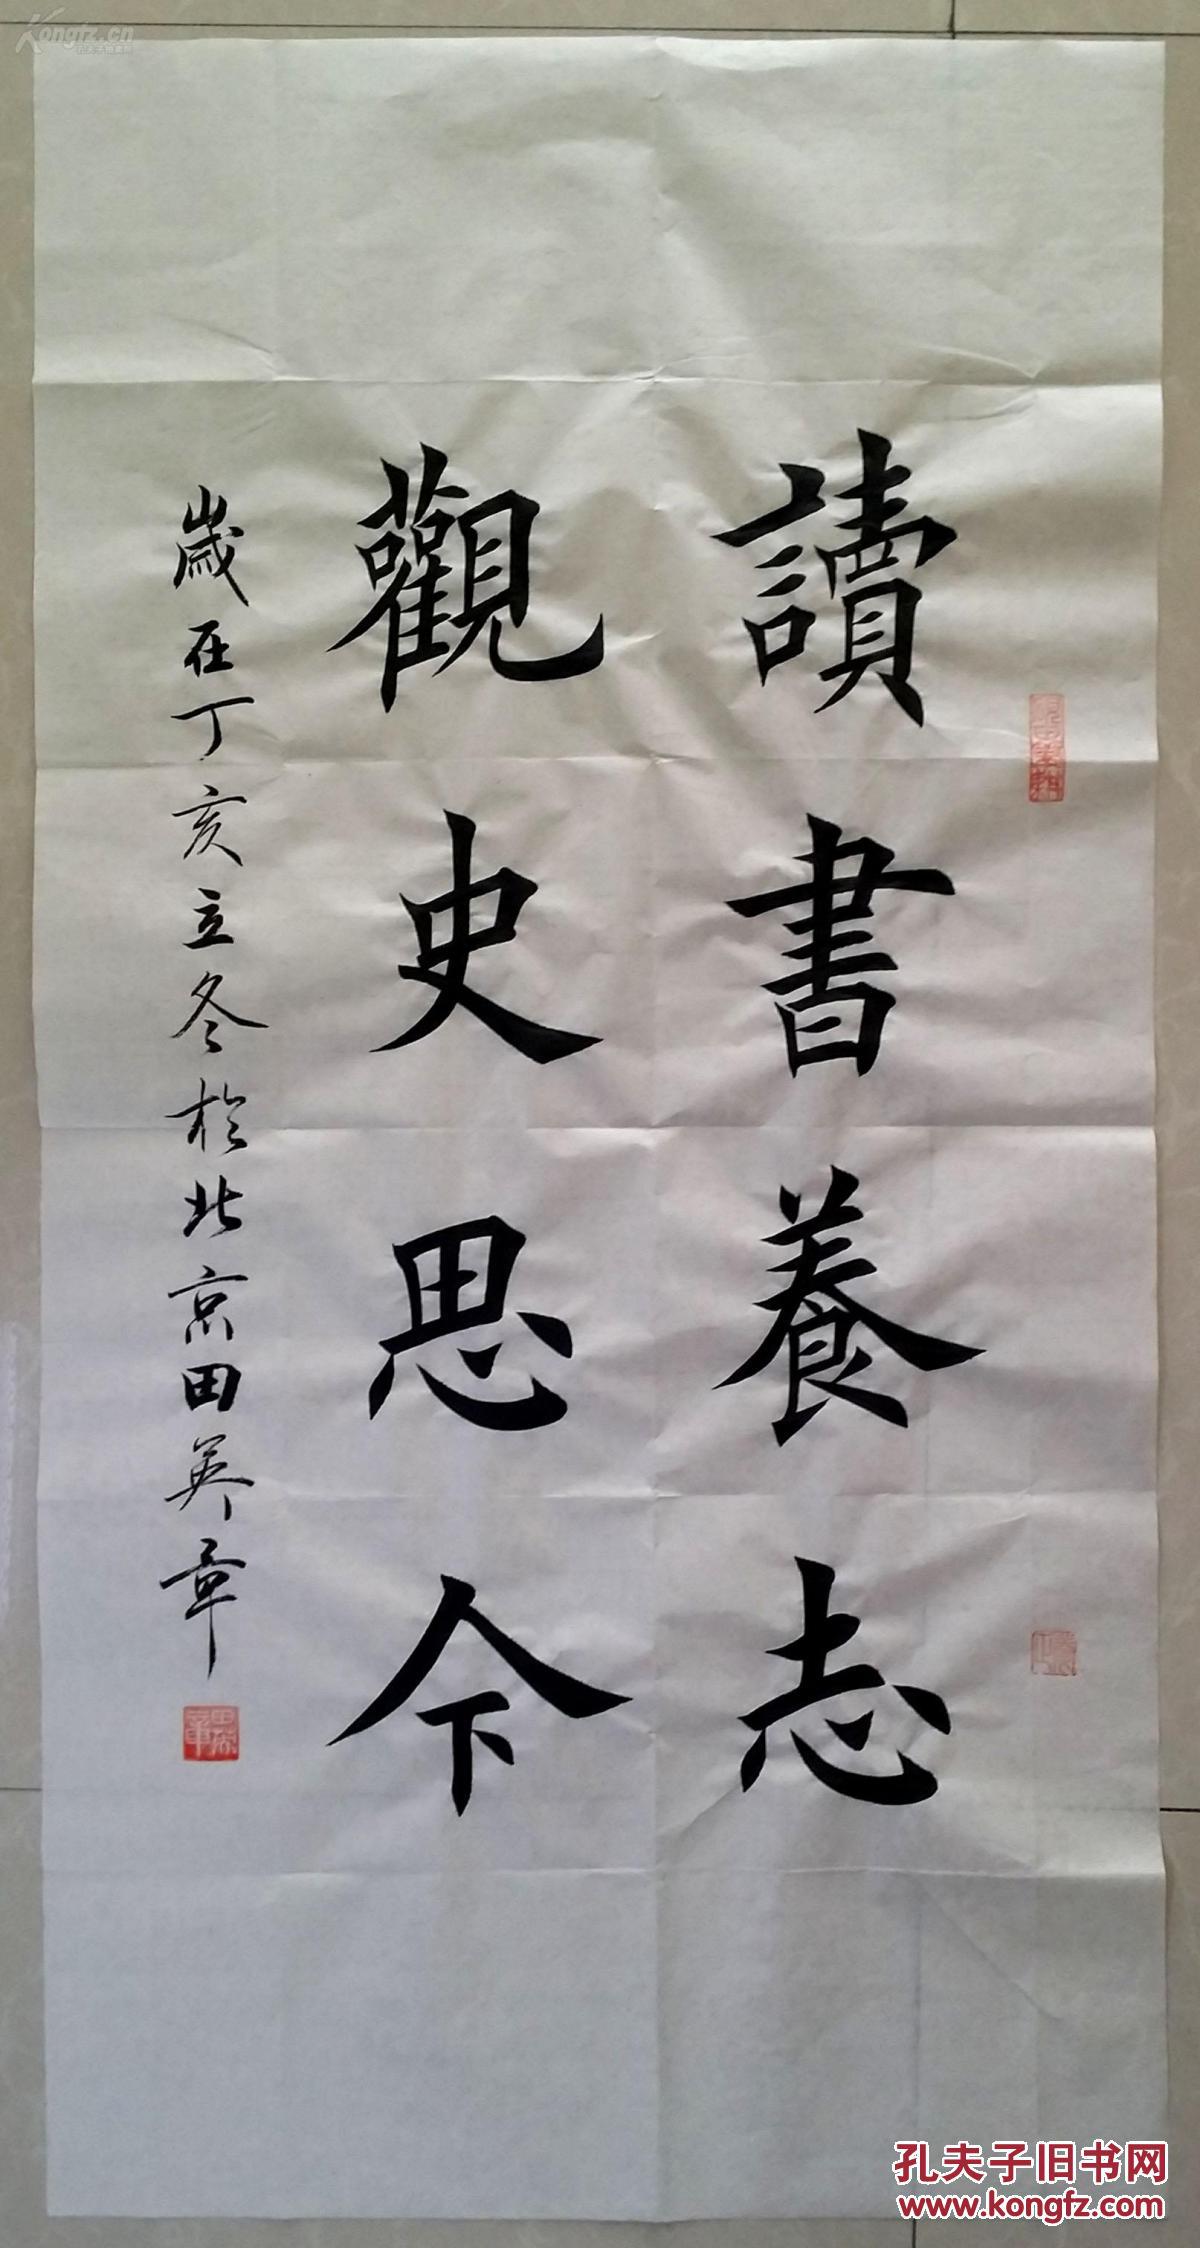 讀書養志
觀史思今
歲在丁亥立冬於北京田英章
田英章
Kongfz.cn
孔夫子旧书网
www.kongfz.com